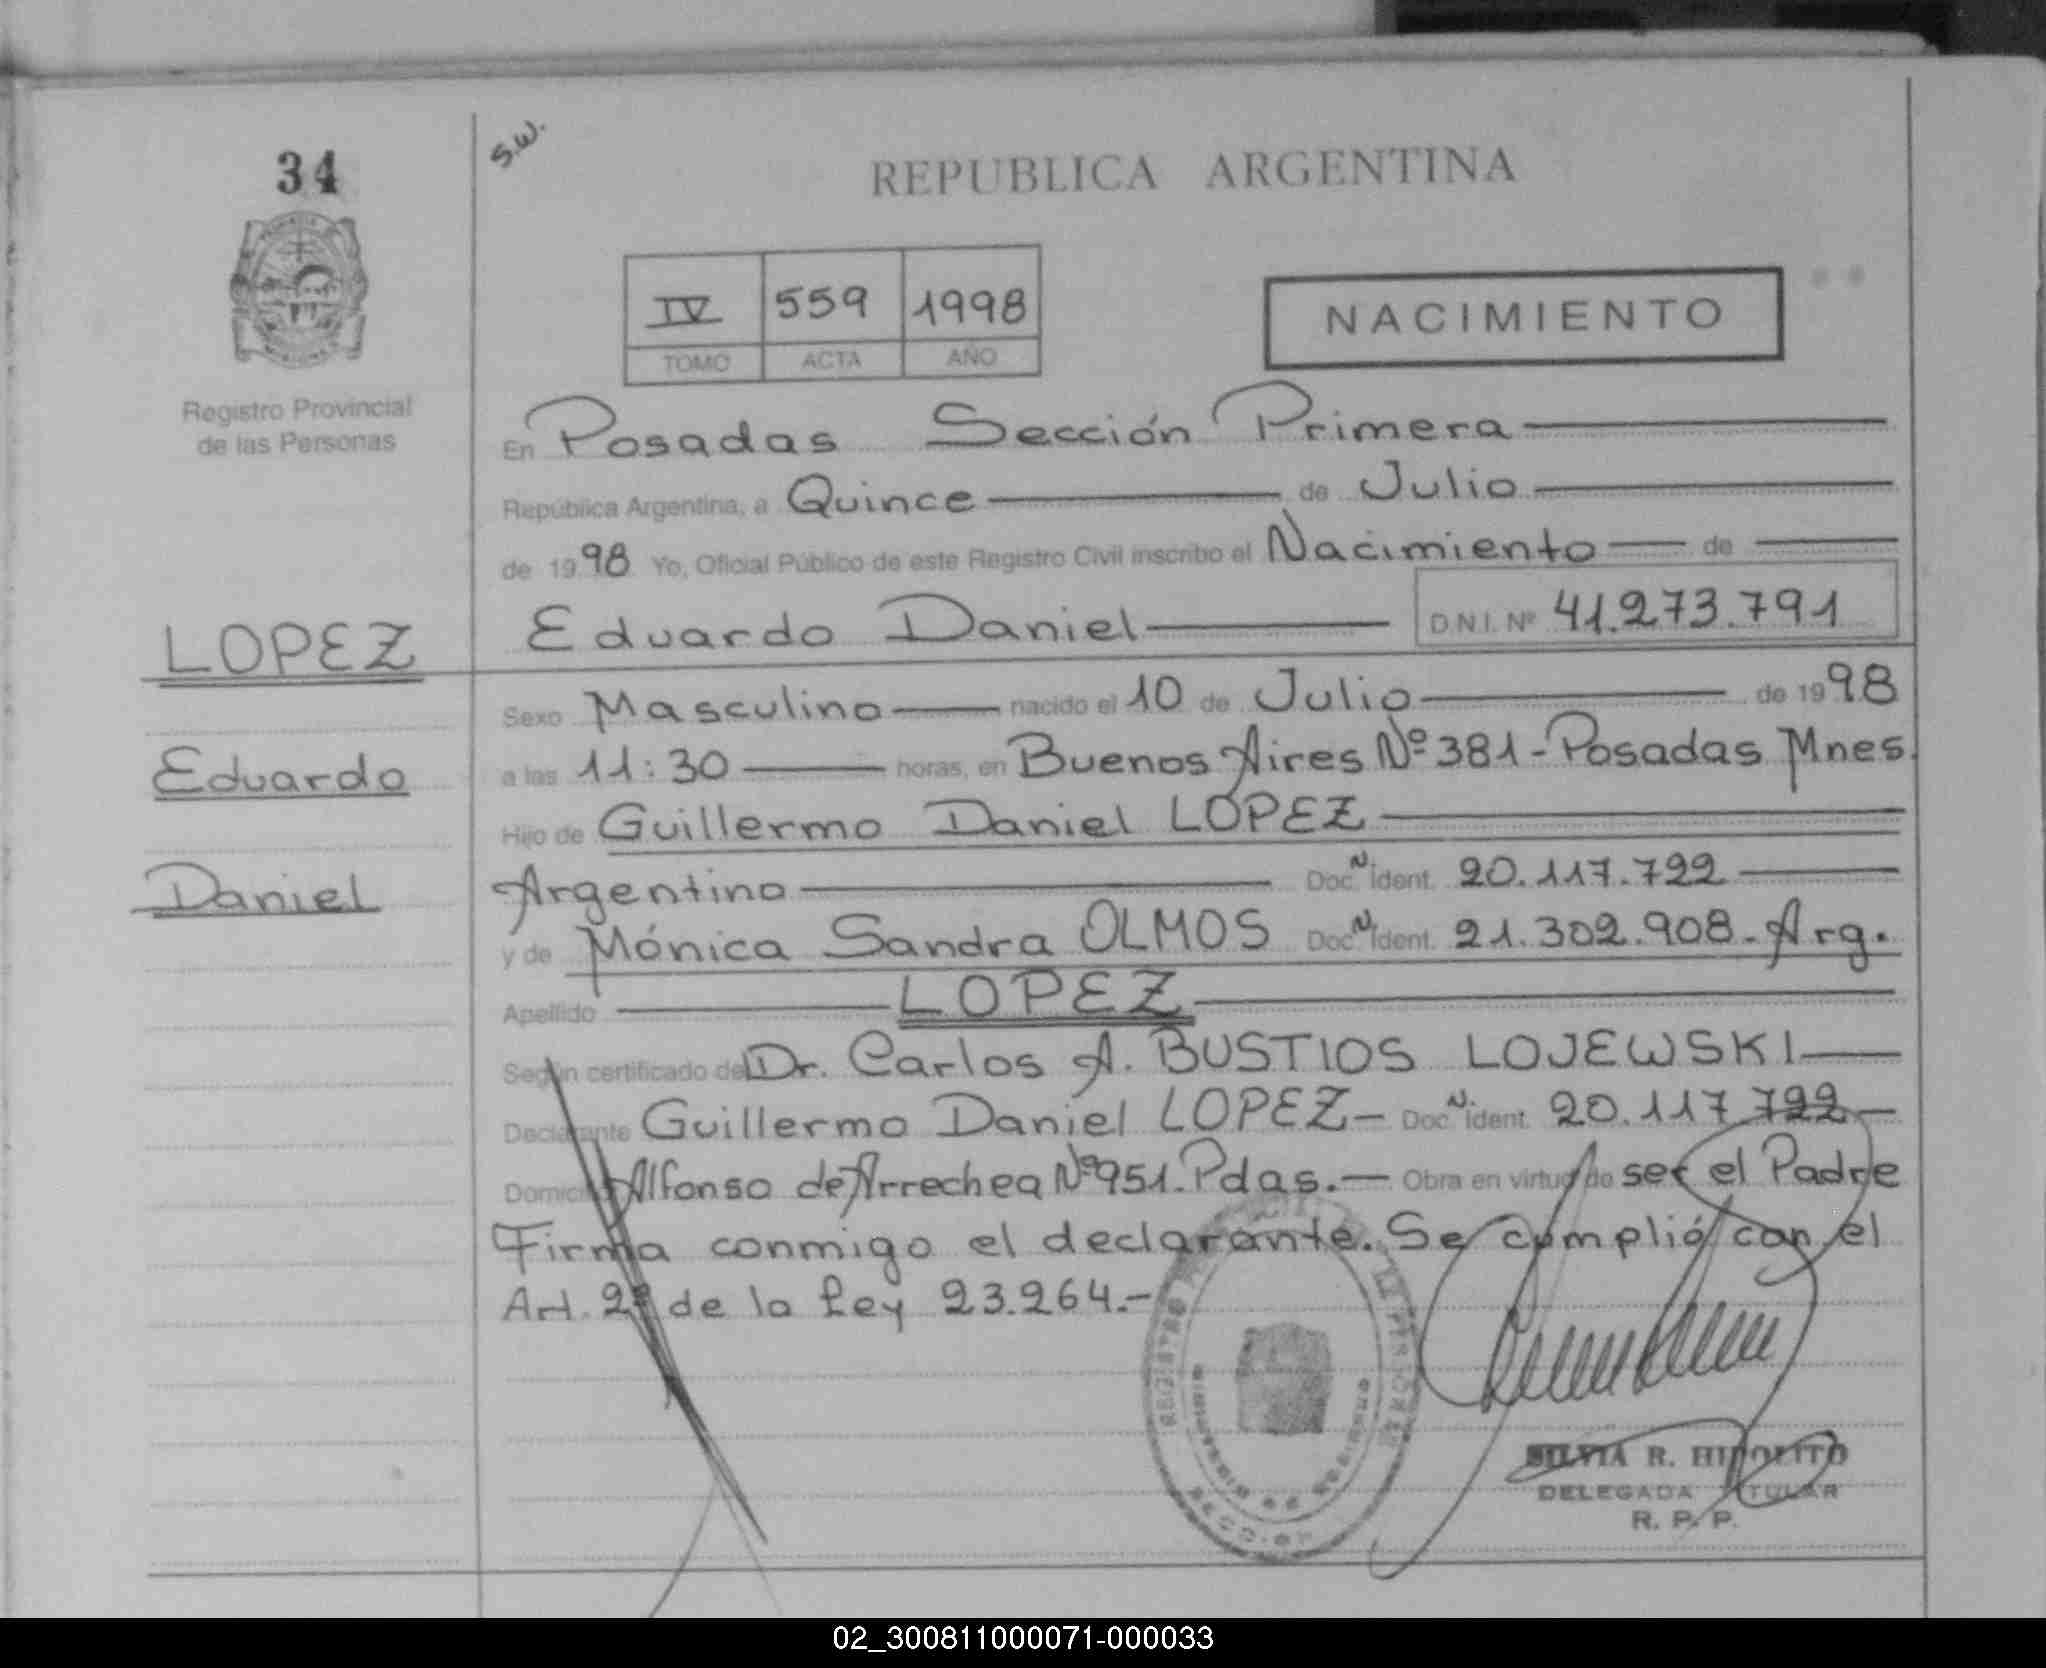 34
S.W.
REPUBLICA ARGENTINA
IV 559 1998
TOMO ACTA AÑO
NACIMIENTO
Registro Provincial
de las Personas
En Posadas Sección Primera
República Argentina, a Quince de Julio
de 1998 Yo, Oficial Público de este Registro Civil inscribo el Nacimiento de
Eduardo Daniel D.N.I. Nº 41.273.791
LOPEZ
Eduardo
Daniel
Sexo Masculino nacido el 10 de Julio de 1998
a las 11:30 horas, en Buenos Aires Nº 381-Posadas Mnes.
Hijo de Guillermo Daniel LOPEZ
Argentino Doc. N. Ident. 20.117.722
y de Mónica Sandra OLMOS Doc. N. Ident. 21.302.908.-Arg.
Apellido LOPEZ
Según certificado de Dr. Carlos A. BUSTIOS LOJEWSKI
Declarante Guillermo Daniel LOPEZ- Doc. N. Ident. 20.117.722-
Domicilio Alfonso de Arrechea Nº 951. Pdas.- Obra en virtud de ser el Padre
Firma conmigo el declarante. Se cumplió con el
Art. 2º de la Ley 23.264.-
SILVIA R. HIPOLITO
DELEGADA TITULAR
R. P. P.
02_300811000071-000033